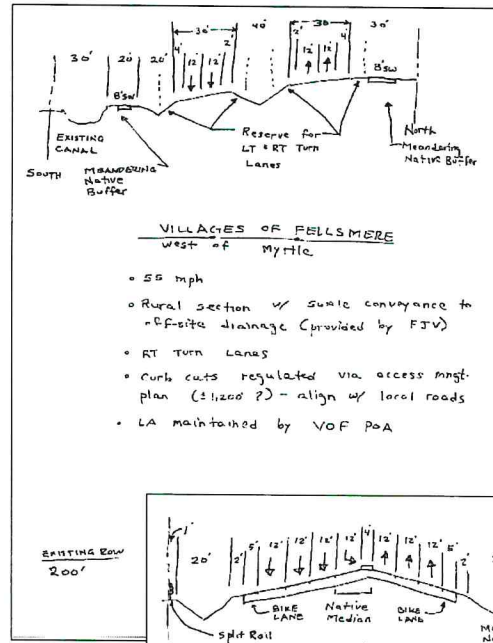 30' 40' 30'
30' 20' 20' 4' 12' 12' 2' 2' 12' 12' 4' 30'
8'SW 8'SW
EXISTING
CANAL
Reserve for
LT & RT Turn
Lanes
North
SOUTH
MEANDERING
Native
Buffer
Meandering
Native Buffer
VILLAGES OF FELLSMERE
West of Myrtle
• 55 mph
• Rural section w/ swale conveyance to
off-site drainage (provided by FJV)
• RT Turn Lanes
• Curb cuts regulated via access mngt.
plan (± 1,200' ?) - align w/ local roads
• LA maintained by VOF POA
EXISTING ROW
200'
1'
20' 2' 5' 12' 12' 12' 12' 4' 12' 12' 12' 5' 2'
BIKE
LANE
Native
Median
BIKE
LANE
Split Rail